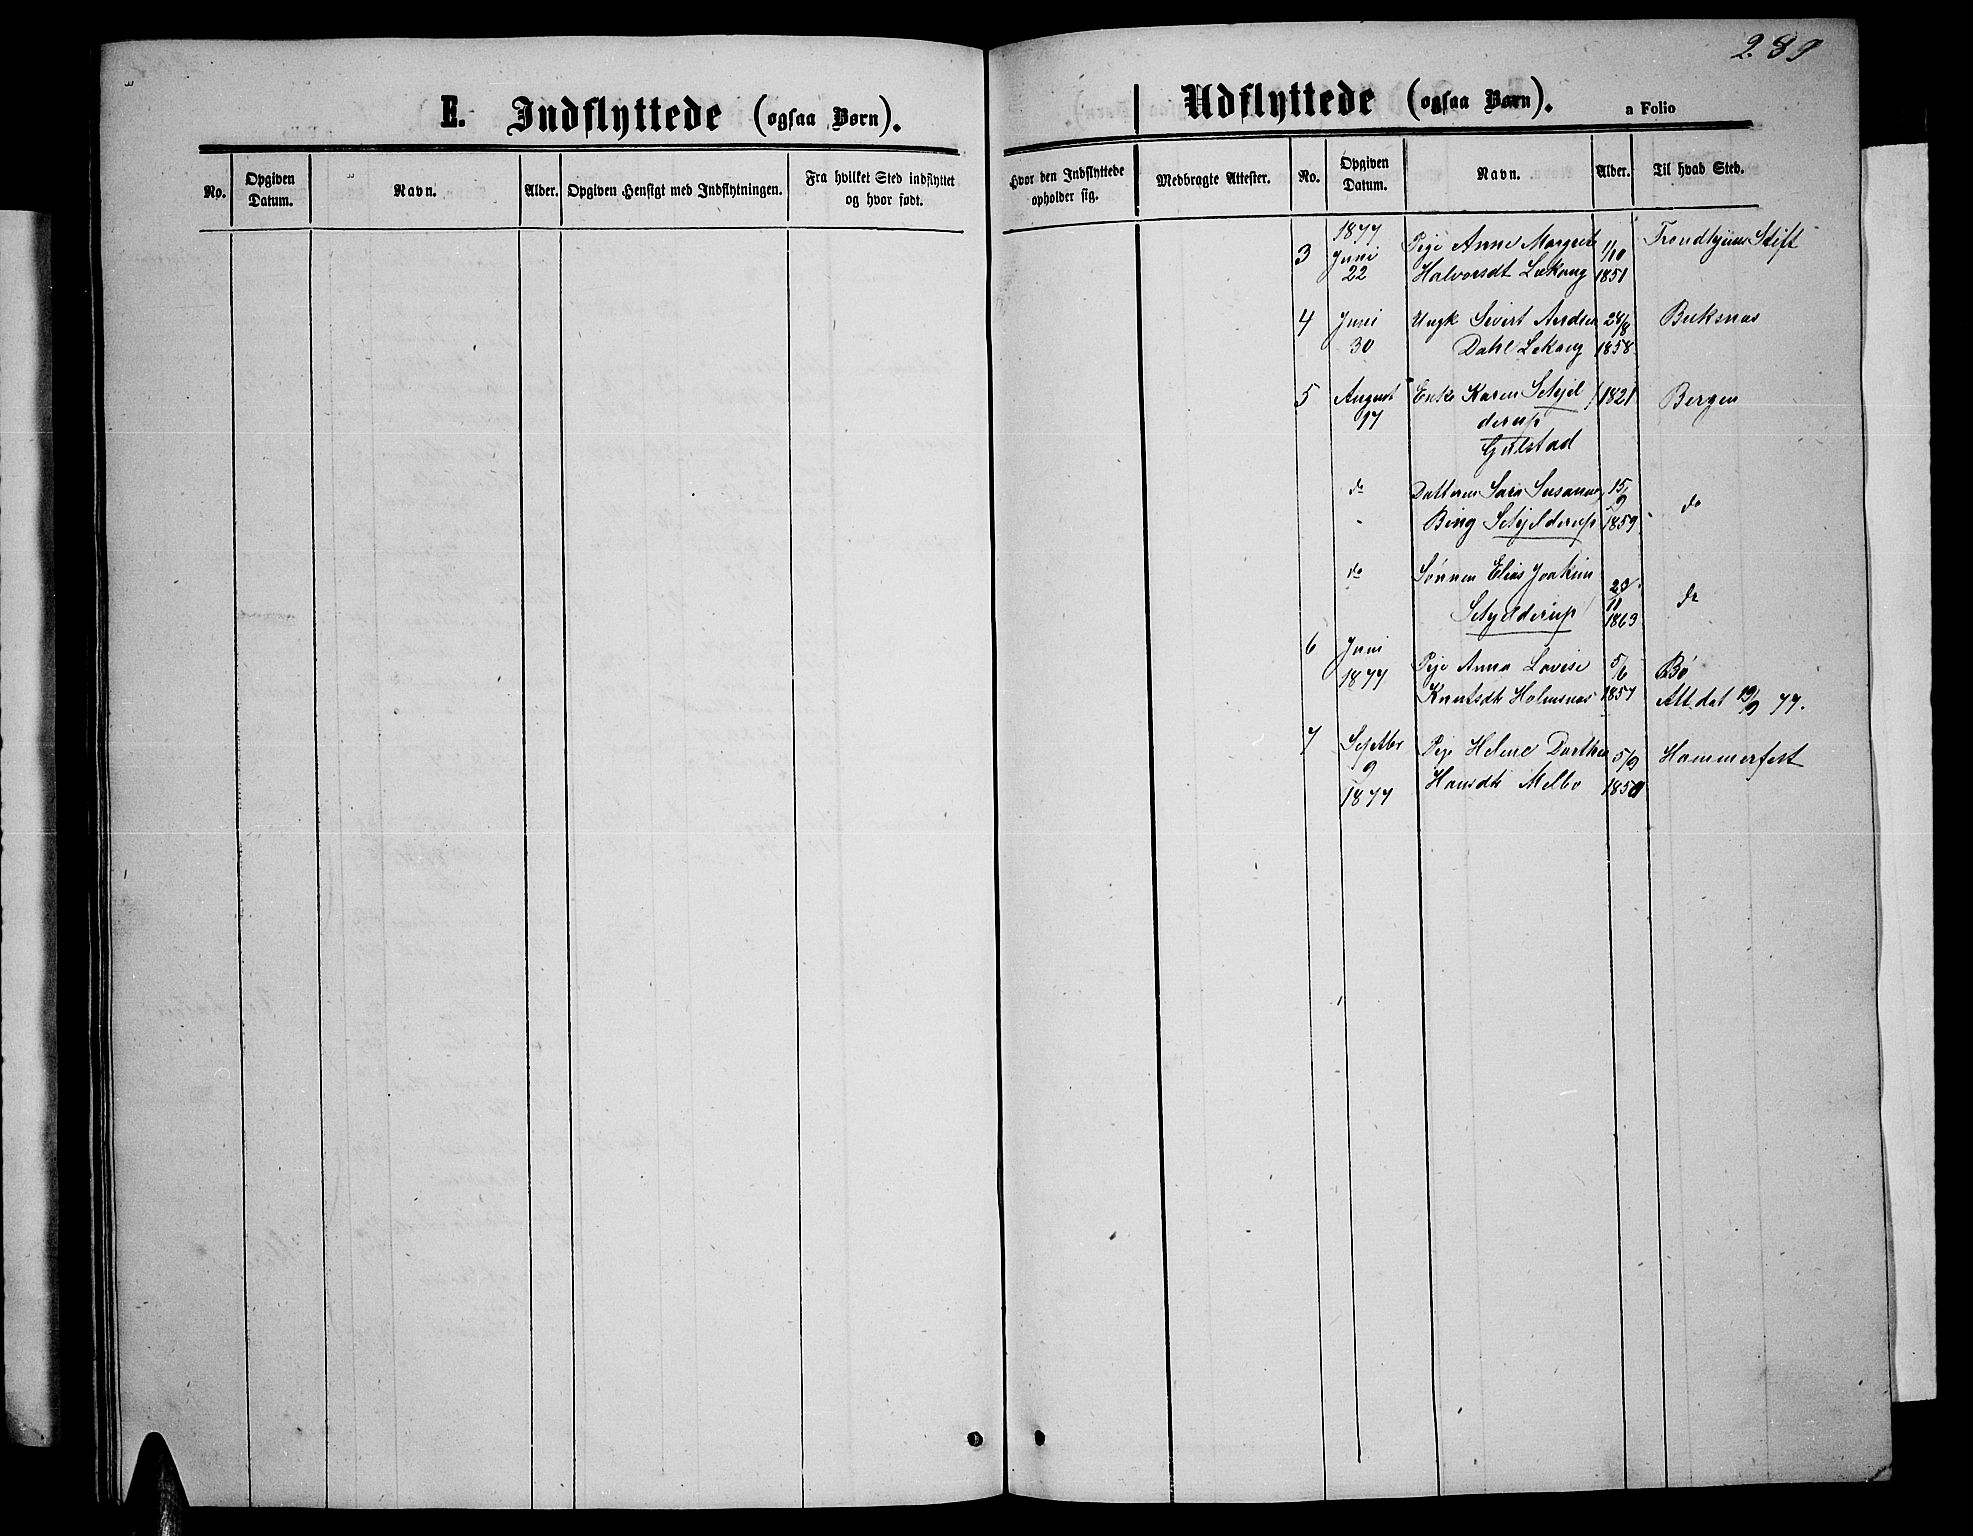 289
E. Indflyttede (ogsaa Børn).
Udflyttede (ogsaa Børn).
a Folio
No.
Opgiven Datum.
Navn.
Alder.
Opgiven Hensigt med Indflytningen.
Fra hvilket Sted indflyttet og hvor født.
Hvor den Indflyttede opholder sig.
Medbragte Attester.
No.
Opgiven Datum.
Navn.
Alder.
Til hvad Sted.
1877
3 Juni Pige Anne Margrete 1/10 Trondhjems Stift
22 Halvorsdt Lekang 1851
4 Juni Ungk Sivert Andsen 24/8 Buksnæs
30 Dahl Lekang 1858
5 August Enke Karen Schjel 1821 Bergen
derup
Gulstad
do Datteren Sara Susanna 15/9 do
Bing Schjelderup 1859
do Sønnen Elias Joakim
Schjelderup 11 1863 do
6 Juni
1877 Pige Anna Lovise 5/6 Bø
Knutsdt Holmsnæs 1857 Att. dat 19/9 77.
7 Septbr Pige Helene Dorthea 5/9 Hammerfest
9
1877 Hansdt Melbo